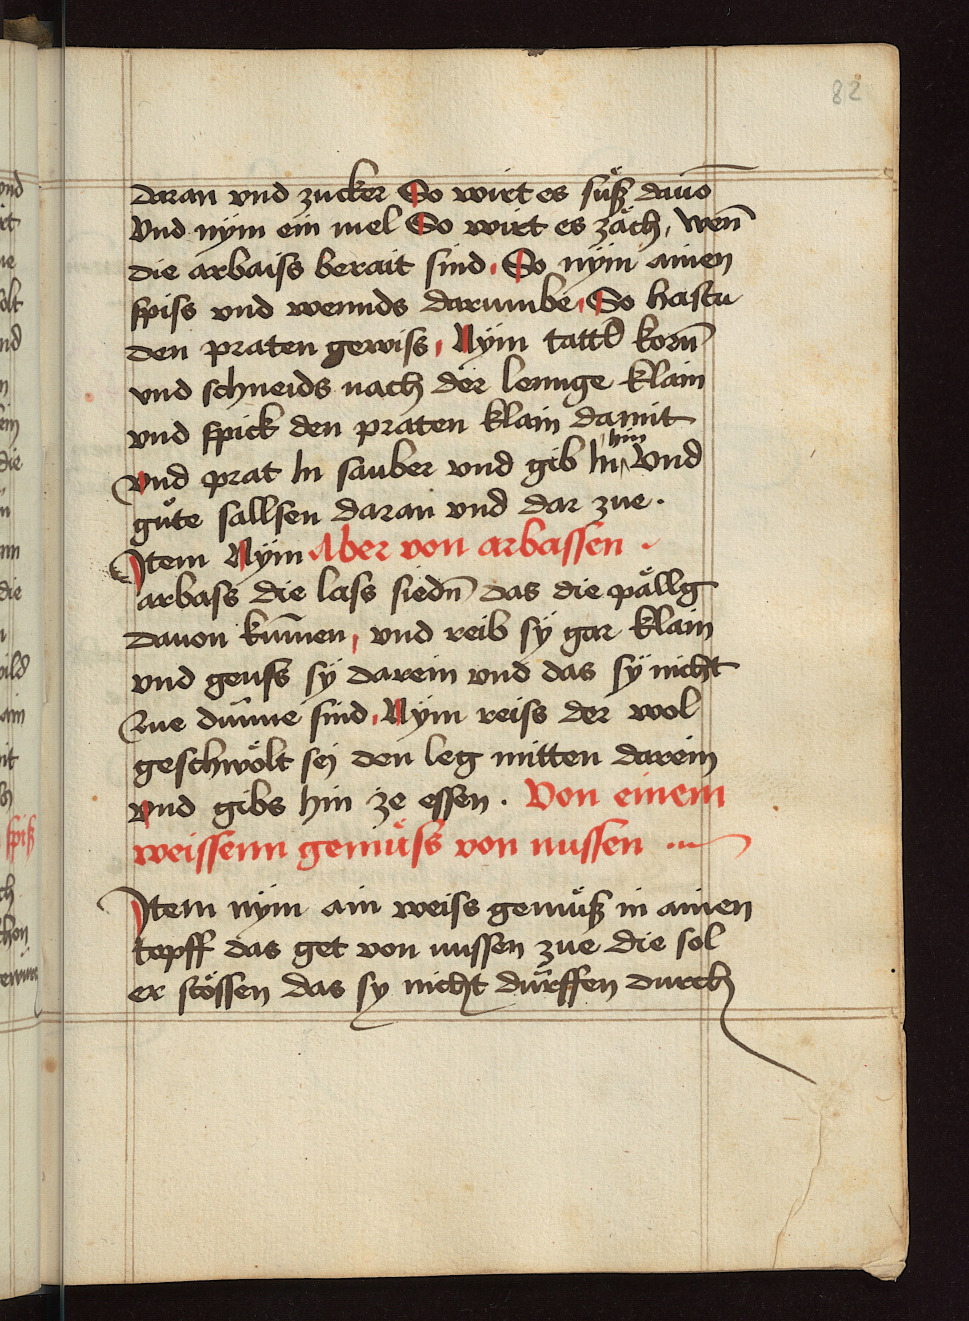 82
daran vnd zucker So wirt es süͤß dauō
Vnd nym ein mel So wirt es zäch, wen̄
die arbaiss berait sind. So nÿm ainen
spiss vnd wennds darumbe, So hastu
den praten gewiss, Nÿm tattl korn̄
vnd schneids nach der lennge klain
vnd spick den praten klain damit
vnd prat in sauber vnd gib in hin Vnd
guͦte sallsen daran vnd dar zue.
Item Nÿm Aber von arbassen.
arbass die lass siedn̄ das die pällg
dauon kūmen, vnd reib sy gar klain
vnd geuss sÿ darein vnd das sÿ nicht
zue dünne sind, Nÿm reiss der wol
geschwölt sej den leg mitten darein
vnd gibs hin ze essen. Von einem
weissenn gemüss von nussen ...
Item nÿm ain weiss gemüß in ainen
topff das get von nussen zue die sol
er stössen das sy nicht dürffen durch